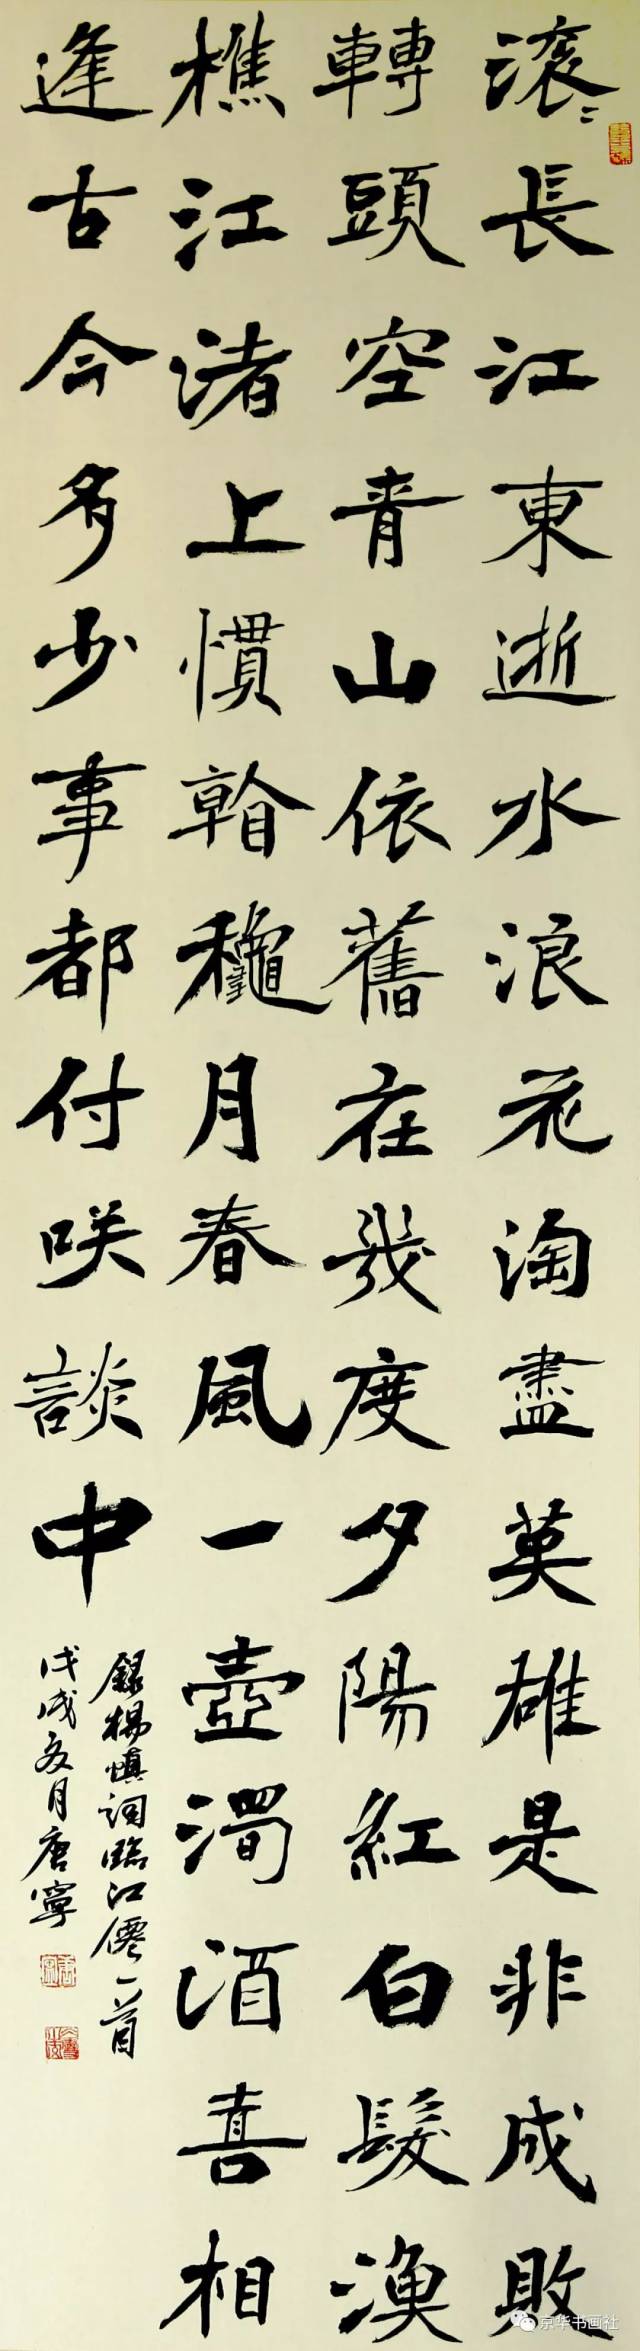 滚〻長江東逝水浪花淘盡英雄是非成敗
轉頭空青山依舊在幾度夕陽紅白髮漁
樵江渚上慣看龝月春風一壺濁酒喜相
逢古今多少事都付咲談中
録楊慎詞臨江僊一首
戊戌夏月唐寧
京华书画社